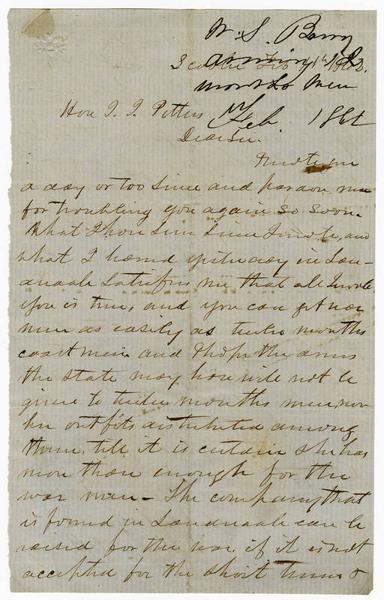 W. S. Berry
Feb 7th 1862
months Men
Hon J. J. Pettus
Feb. 1862
Dear Sir.
I wrote you
a day or too since and pardon me
for troubling you again so soon.
What I have seen since I wrote, and
what I heard yesterday in Lau-
derdale satisfies me that all I wrote
you is true, and you can get war
men as easily as twelve months
coast men and I hope the arms
the state may have will not be
given to twelve months men, nor
her outfits distributed among
them, till it is certain she has
more than enough for the
war men — The company that
is formed in Lauderdale can be
raised for the war if it is not
accepted for the short time &